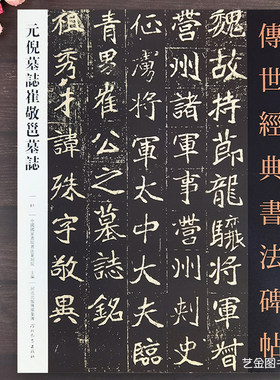 傳世經典書法碑帖
魏故持節龍驤將軍
營州諸軍事營州
征虜將軍太夫臨
青男崔公之墓誌銘
祖秀才諱殊字敬異
元倪墓誌崔敬邕墓誌
艺金图书